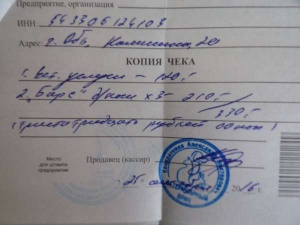 Предприятие, организация
ИНН 543305124103
Адрес: г. Обь, Калинина, 20
КОПИЯ ЧЕКА
1. вет. услуги – 120,-
2. „Барс" х3 – 210,-
330,-
(триста тридцать рублей 00 коп)
Место для штампа предприятия
Продавец (кассир)
25 2016 г.